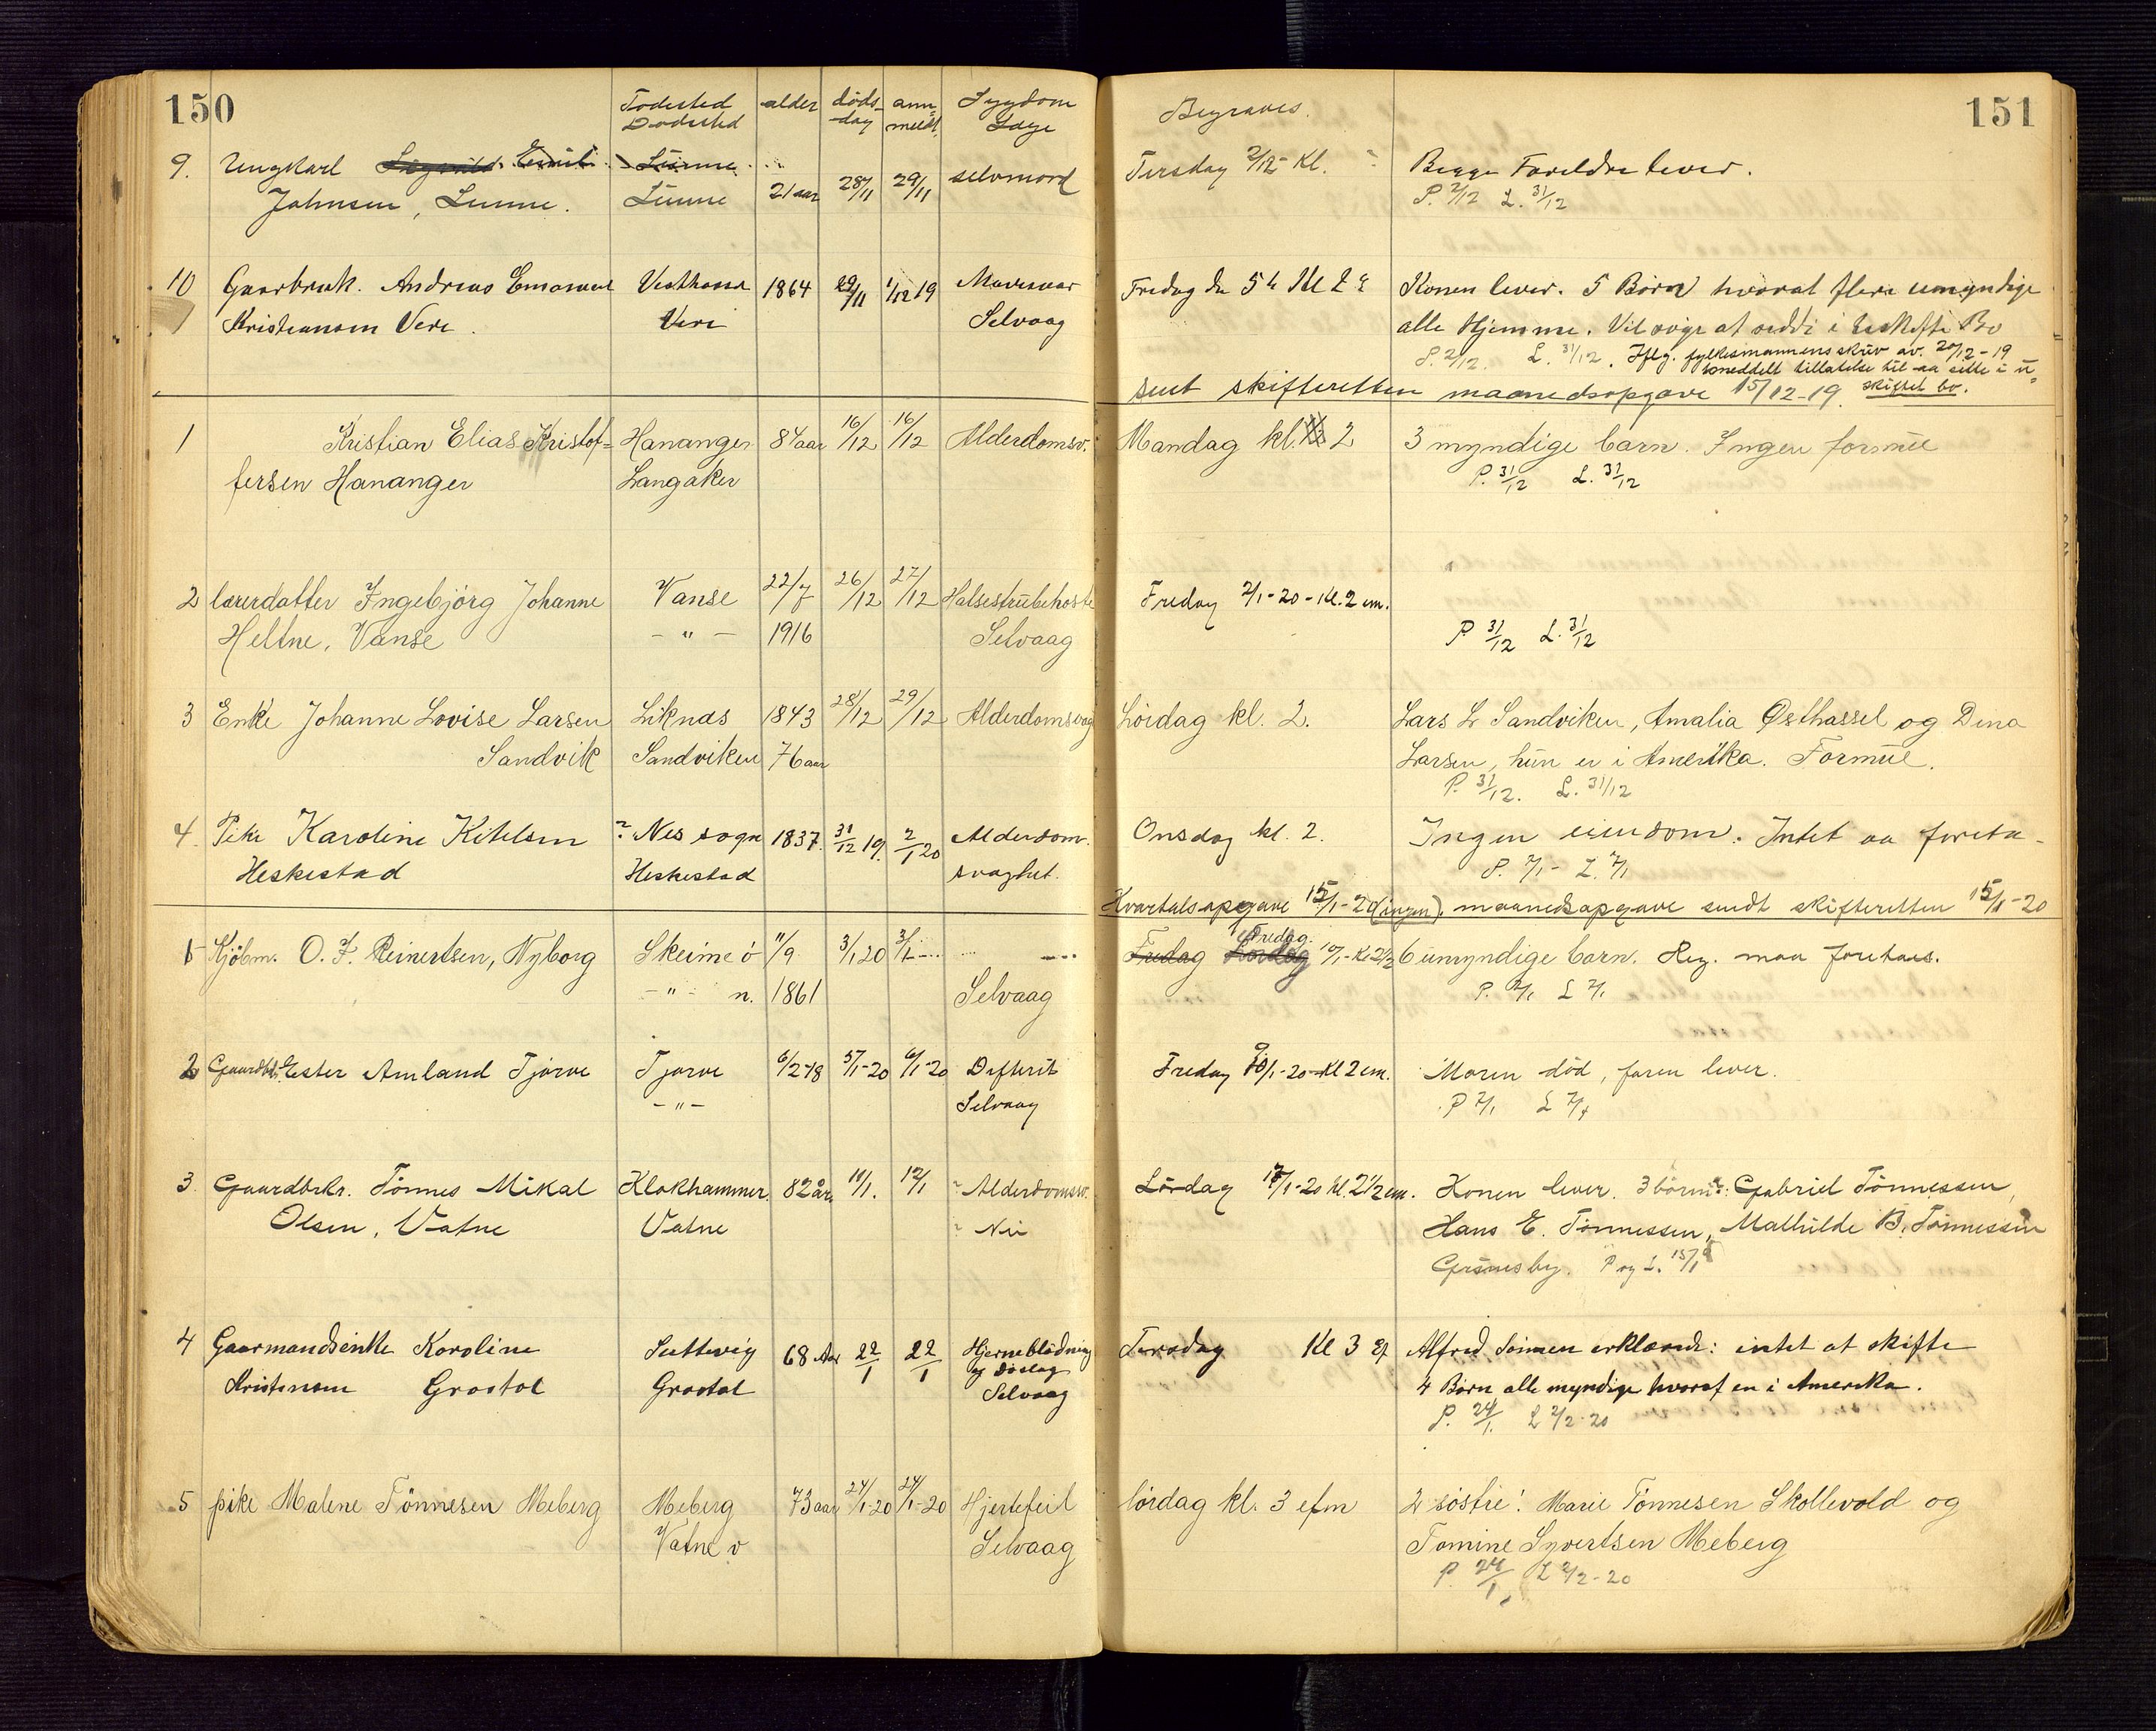 150
Fødested alder døds- an- Sygdom
Dødsted dag meldt. Læge
Begraves.
151
9. Ungkarl Lunne
Johnsen, Lunne. Lunne 21 aar 28/11 29/11 selvmord
Tirsdag 2/12 - Kl. Begge Foreldre lever.
P. 2/12 L. 31/12
10 Gaarbruk. Andreas Emanuel Vesthassel 1864 29/11 1/12 19 Mavesaar
Kristiansen Vere. Vere Selvaag
Fredag den 5te Kl 2 Konen lever. 5 Børn hvoraf flere umyndige
alle Hjemme. Vil søge at sidde i uskiftet Bo
P. 2/12. L. 31/12. Iflg. fylkesmannens skriv av. 20/12-19
meddelt tillatelse til aa sitte i u-
skiftet bo.
sent skifteretten maanedsopgave 15/12-19.
1 Kristian Elias Kristof= Hananger 84 aar 16/12 16/12 Alderdomsv.
fersen Hananger Langaker
Mandag kl. 2 3 myndige barn. Ingen formue
P. 31/12 L. 31/12
2 lærerdatter Ingebjörg Johanne Vanse 22/7 26/12 27/12 Halsestrubehoste
Heltne, Vanse - " - 1916 Selvaag
Fredag 2/1-20 - Kl. 2 em.
P 31/12 L. 31/12
3 Enke Johanne Lovise Larsen Liknes 1843 28/12 29/12 Alderdomsvag
Sandvik Sandviken 76 aar
Lördag kl. 2. Lars L Sandviken, Amalia Østhassel og Dina
Larsen, hun er i Amerika. Formue.
P. 31/12. L. 31/12
4. Pike Karoline Ketelsen ? Nes sogn 1837. 31/12 19. 2/1 20 Alderdom.
Heskestad Heskestad svaghet.
Onsdag kl. 2. Ingen eiendom. Intet aa foreta-
P. 7/1 - L. 7/1
Kvartalsopgave 15/1-20 (ingen). maanedsopgave sendt skifteretten 15/1-20
1 Kjöbm. O. F. Reinertsen, Nyborg Skeime ö 11/9 3/1 20 3/1 ---- ---
- " - n. 1861 Selvaag
Fredag.
Fredag Lördag 10/1 - Kl 2 1/2 6 umyndige barn. Reg. maa foretaes.
P. 7/1 L 7/1
2 Gaardbr. Ester Amland Tjörve Tjørve 6/2-18 5/1-20 6/1-20 Difterit
- " - Selvaag
Fredag 9/1-20 - Kl 2 em. Moren död, faren lever.
P 7/1 L 7/1
3. Gaardbrkr. Tönnes Mikal Klokhammer. 82 år 11/1. 12/1 Alderdomsv.
Olsen, Vatne Vatne Nei
Lördag 17/1-20 kl. 2 1/2 em. Konen lever. 3 börn: Gabriel Tönnessen,
Hans E. Tönnessen, Mathilde B. Tönnessen
Grimsby. P og L. 15/1
4 Gaarmandsenke Karoline Sættevig 68 Aar 22/1 22/1 Hjerneblødning
og slag
Kristensen Grostøl Grostøl Selvaag
Torsdag Kl 3 Ef Alfred Simsen erklærede: intet at skifte
4 Børn alle myndige hvoraf en i Amerika.
P. 24/1. L 2/2-20
5 pike Malene Tönnesen Meberg Meberg 73 aar 24/1-20 24/1-20 Hjertefeil
Vatne v Selvaag
lördag kl. 3 efm 2 söstre: Marie Tönnesen Skollevold og
Tomine Syvertsen Meberg
P. 24/1 L 2/2-20